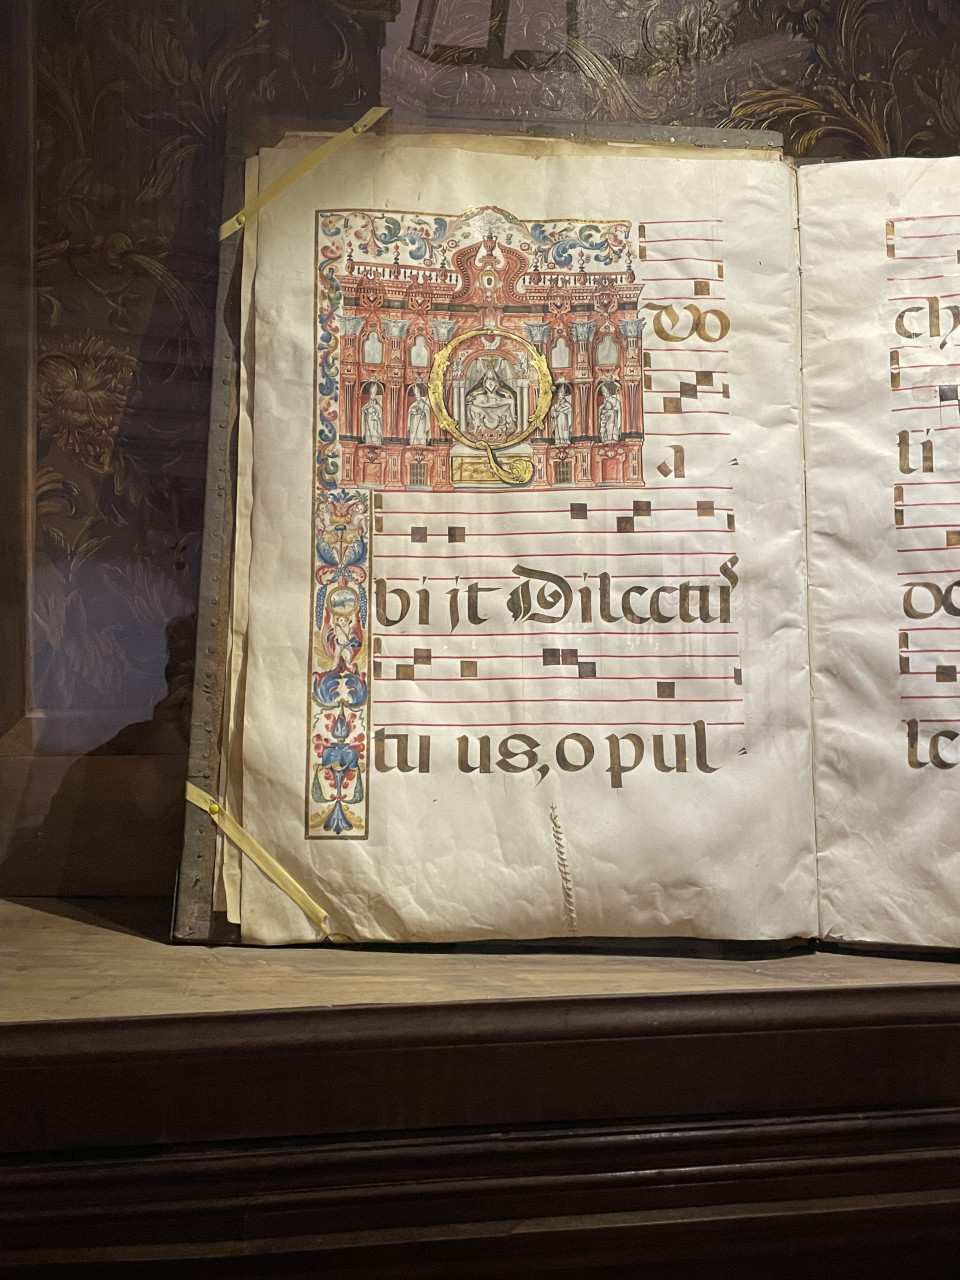 QVo
a
bijt Dilectus
tuus, o pul
ch
ti